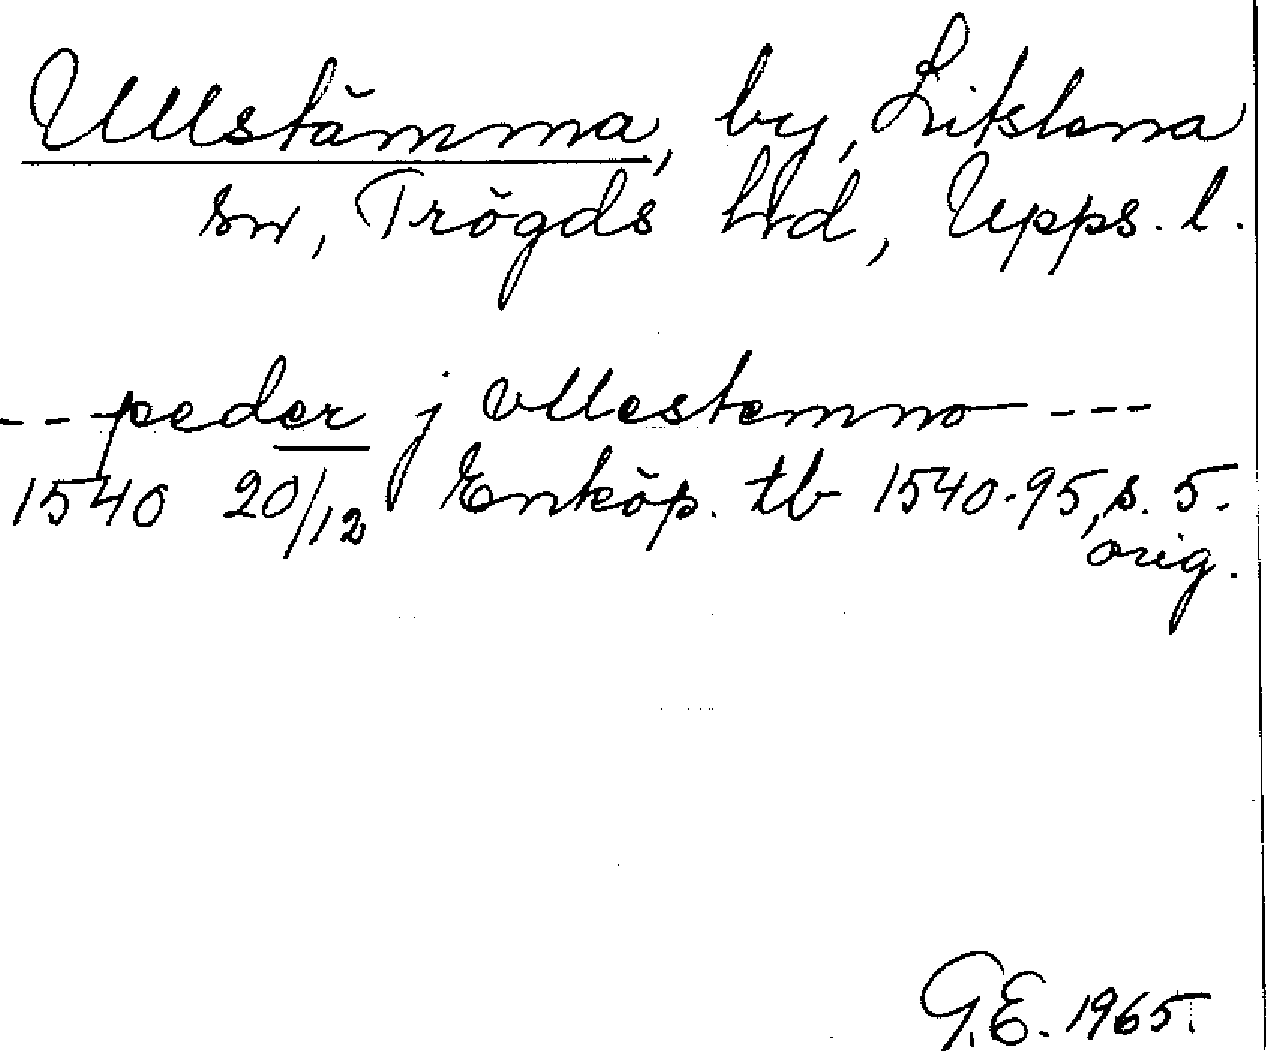 Ullstämma, by, Litslena
sn, Trögds hd, Upps. l.
--- peder j vllestemmo ---
1540 20/12 Enköp. tb 1540-95, s. 5.
orig.
G.E. 1965.